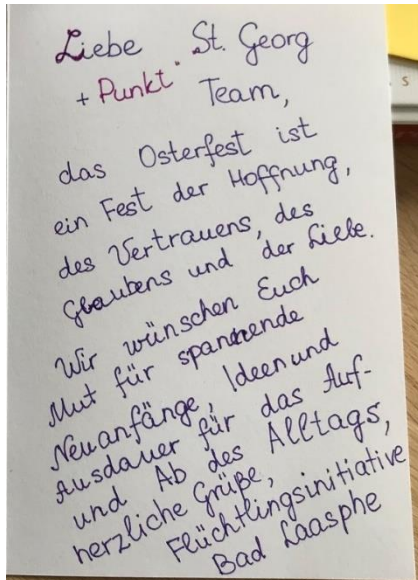 Liebe St. Georg
+ Punkt. Team,
das Osterfest ist
ein Fest der Hoffnung,
des Vertrauens, des
Glaubens und der Liebe.
Wir wünschen Euch
Mut für spannende
Neuanfänge, Ideen und
Ausdauer für das Auf-
und Ab des Alltags,
herzliche Grüße,
Flüchtlingsinitiative
Bad Laasphe